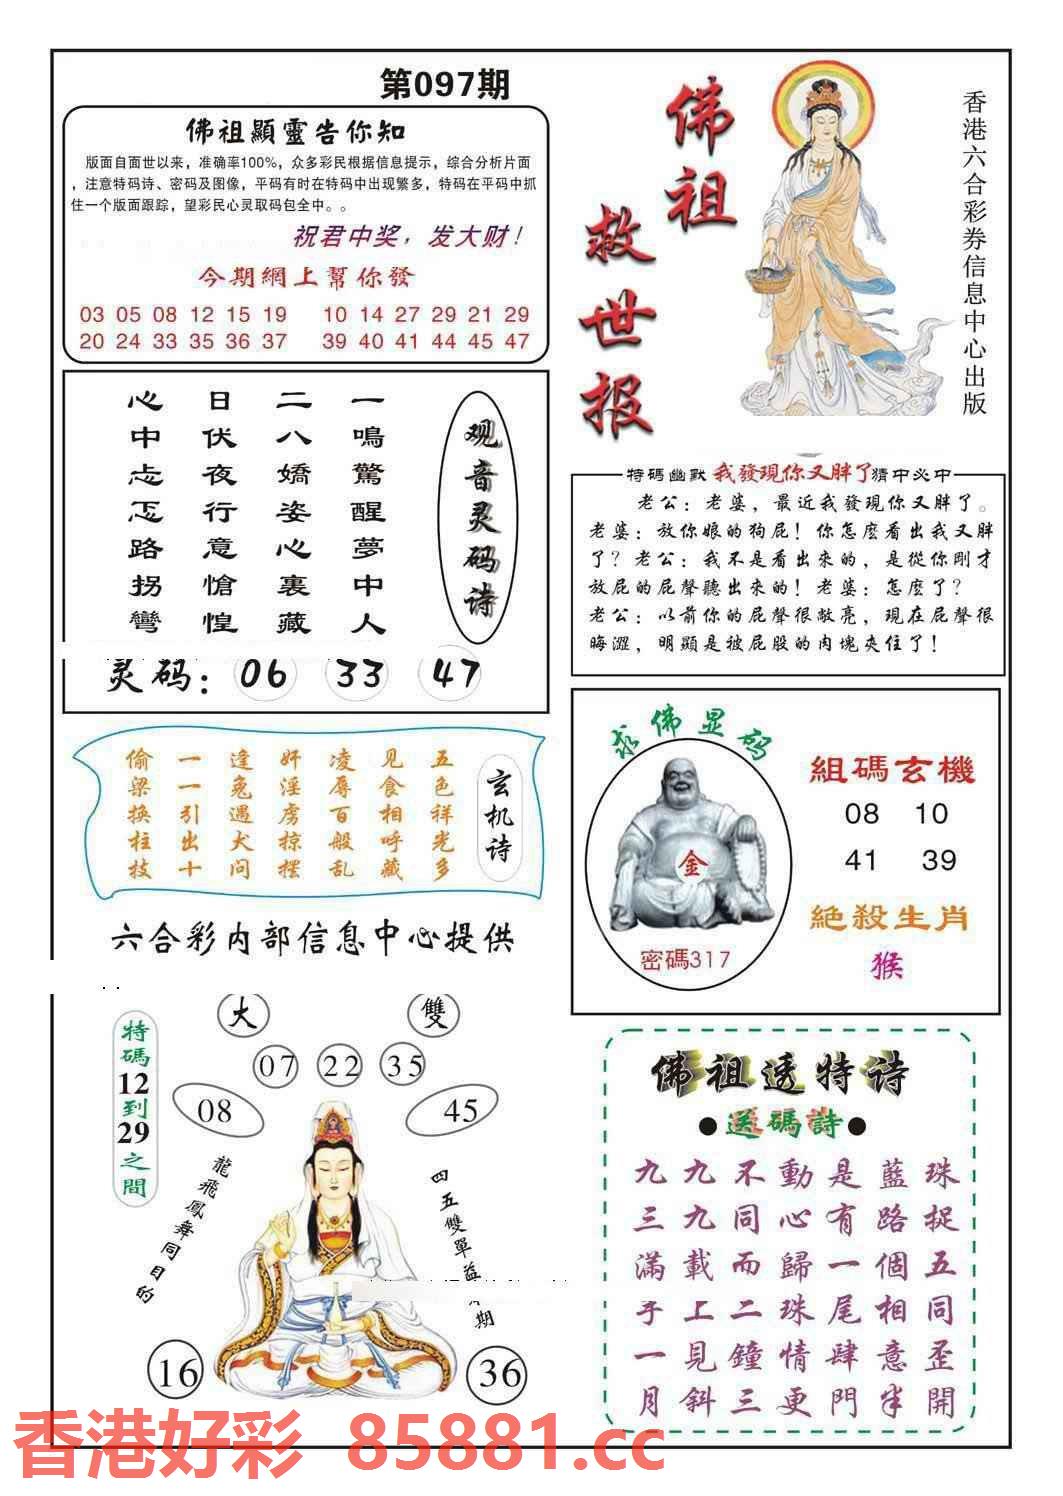 第097期
佛祖顯靈告你知
版面自面世以来，准确率100%，众多彩民根据信息提示，综合分析片面
，注意特码诗、密码及图像，平码有时在特码中出现繁多，特码在平码中抓
住一个版面跟踪，望彩民心灵取码包全中。。
祝君中奖，发大财！
今期網上幫你發
03 05 08 12 15 19 10 14 27 29 21 29
20 24 33 35 36 37 39 40 41 44 45 47
佛祖
救世报
香港六合彩券信息中心出版
观音灵码诗
一鳴驚醒夢中人
二八嬌姿心裏藏
日伏夜行意愴惶
心中忐忑路拐彎
灵码：06 33 47
特碼幽默 我發現你又胖了 猜中必中
老公：老婆，最近我發現你又胖了。
老婆：放你娘的狗屁！你怎麼看出我又胖
了？老公：我不是看出來的，是從你剛才
放屁的屁聲聽出來的！老婆：怎麼了？
老公：以前你的屁聲很敞亮，現在屁聲很
晦澀，明顯是被屁股的肉塊夾住了！
玄机诗
五色祥光多
见食相呼藏
凌辱百般乱
奸淫虏掠摆
逢兔遇犬问
一一引出十
偷梁换柱技
六合彩内部信息中心提供
求佛显码
金
密碼317
組碼玄機
08 10
41 39
絕殺生肖
猴
大 雙
07 22 35
08 45
特碼12到29之間
龍飛鳳舞同目的
四五雙單益
期
16 36
佛祖透特诗
●送碼詩●
九九不動是藍珠
三九同心有路捉
滿載而歸一個五
手上二珠尾相同
一見鐘情肆意歪
月斜三更門半開
香港好彩 85881.cc